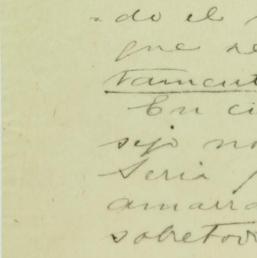 do el
que se
tamente
En ci
sejo no
Seria
amarra
sobretod